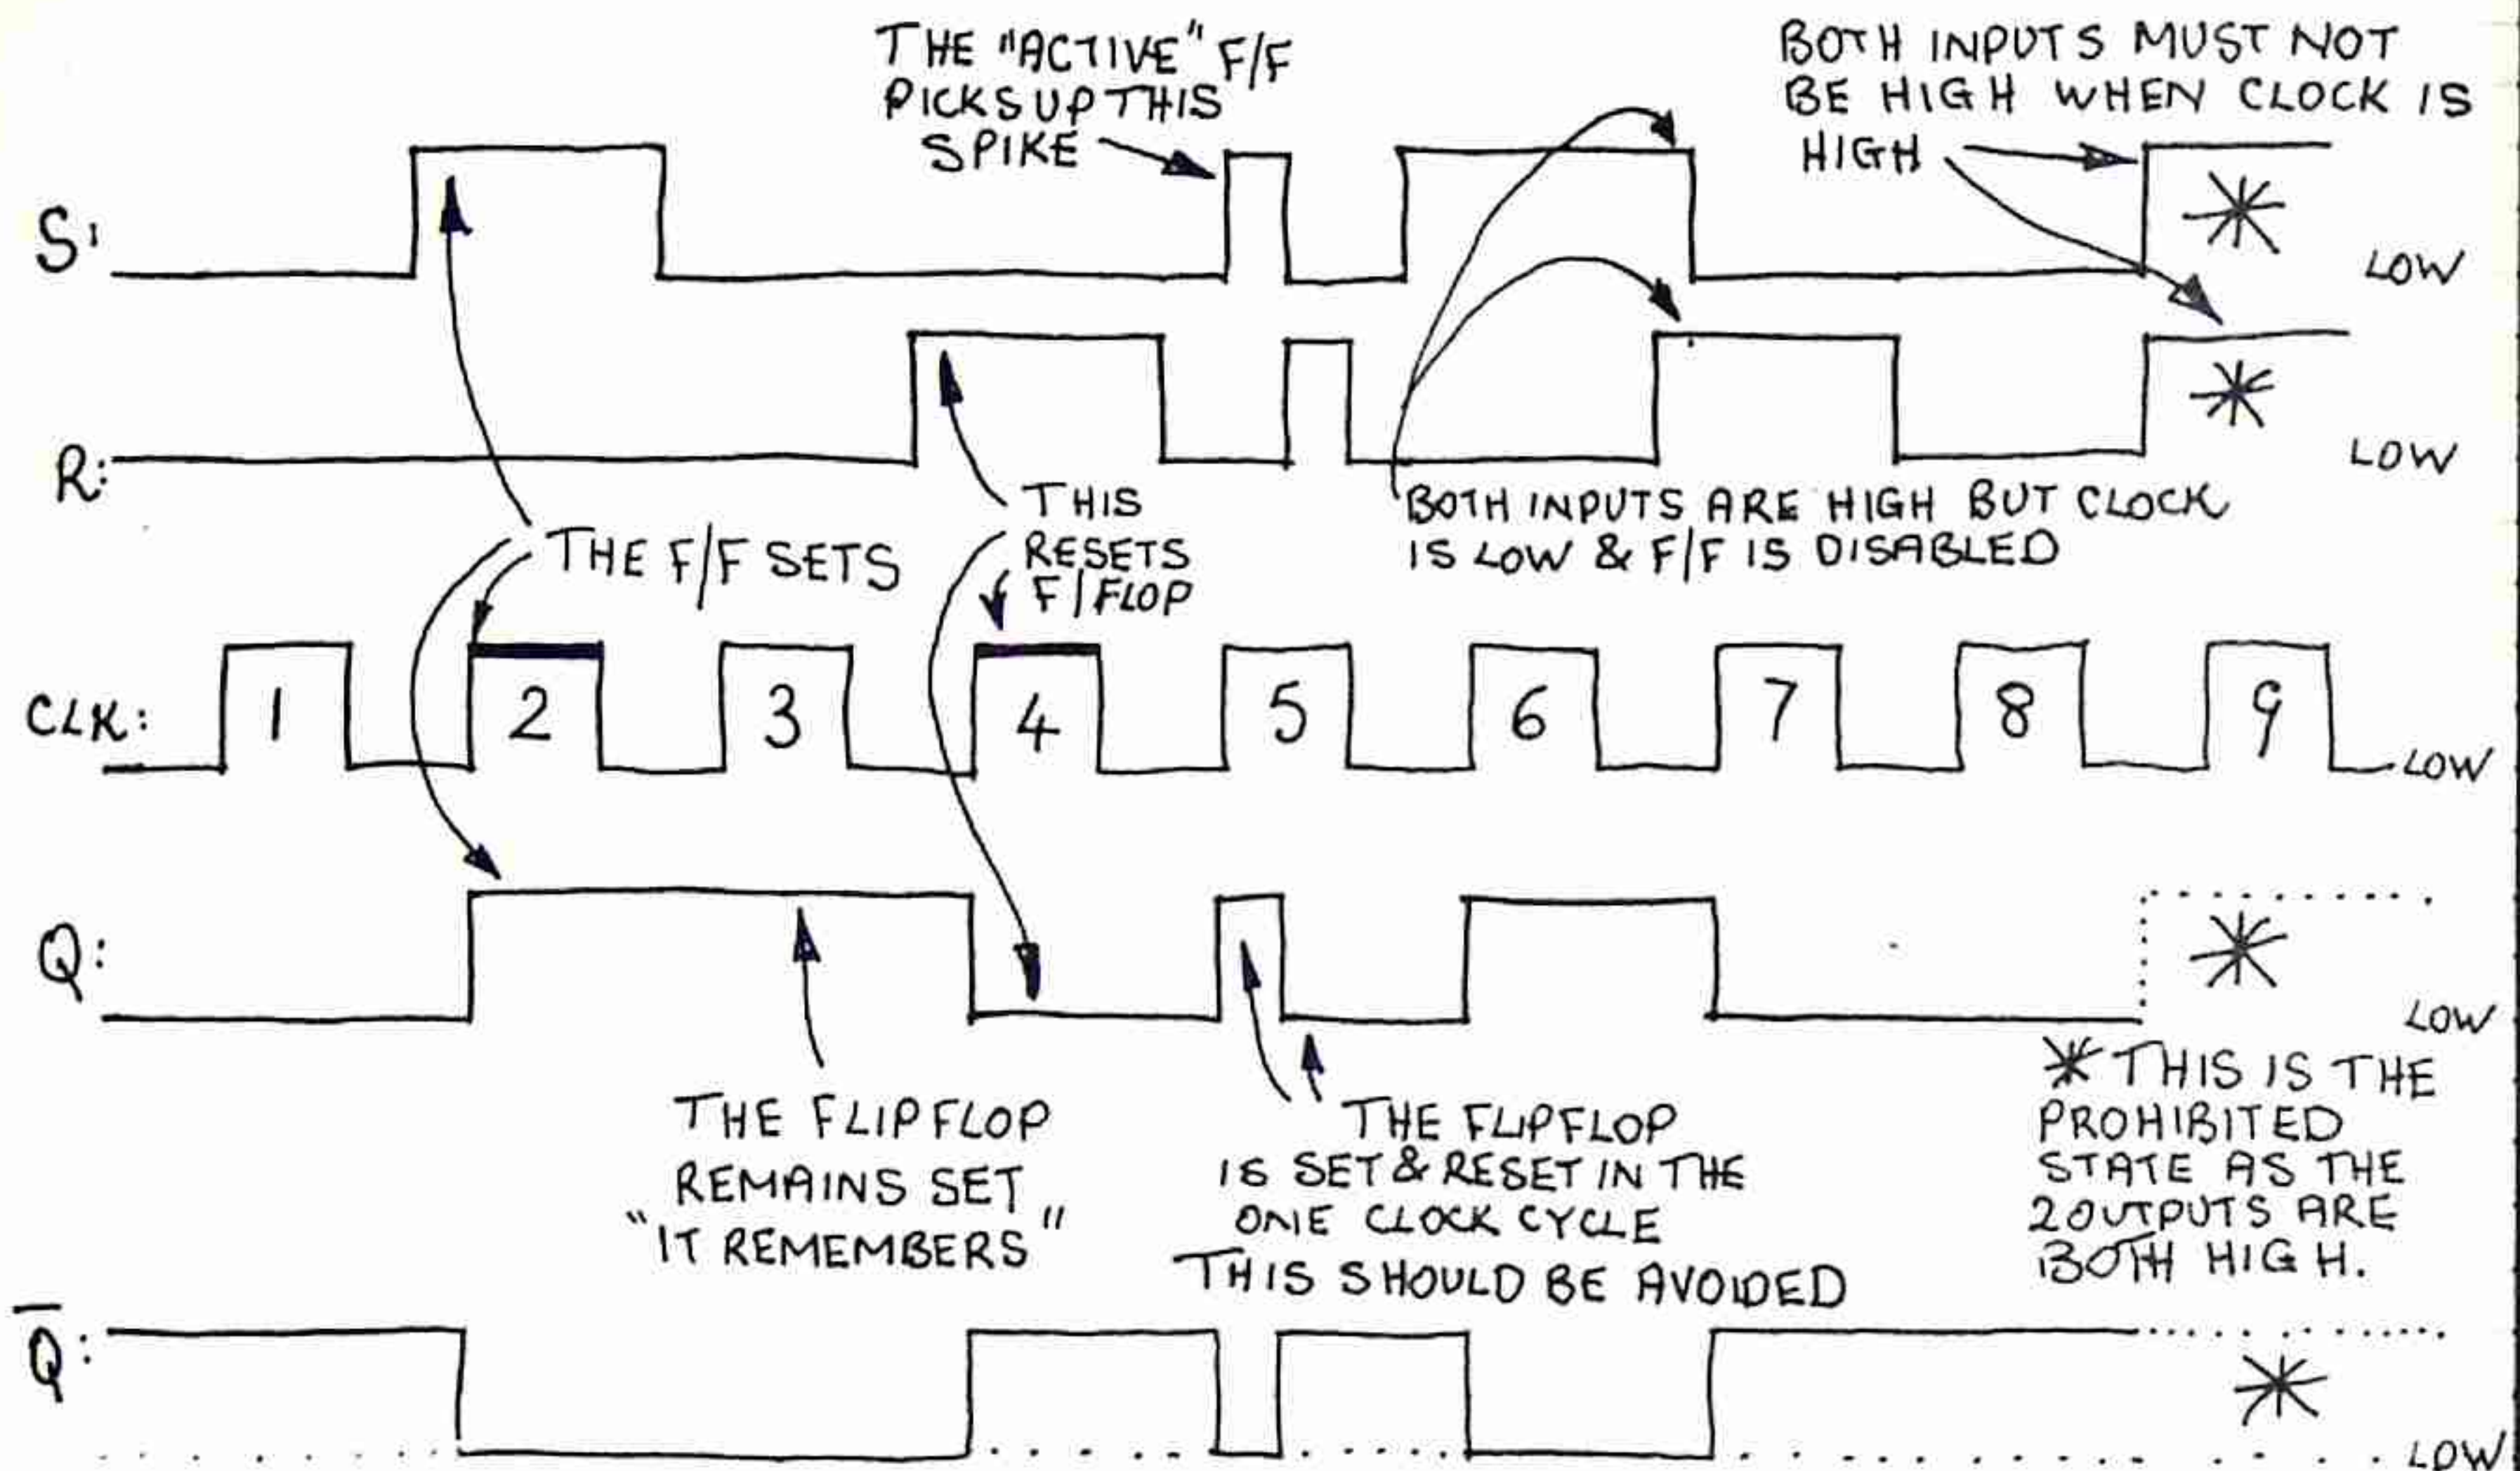 THE "ACTIVE" F/F
PICKS UP THIS
SPIKE
BOTH INPUTS MUST NOT
BE HIGH WHEN CLOCK IS
HIGH
S:
LOW
R:
LOW
THE F/F SETS
THIS
RESETS
F/FLOP
BOTH INPUTS ARE HIGH BUT CLOCK
IS LOW & F/F IS DISABLED
CLK:
1
2
3
4
5
6
7
8
9
LOW
Q:
LOW
THE FLIPFLOP
REMAINS SET
"IT REMEMBERS"
THE FLIPFLOP
IS SET & RESET IN THE
ONE CLOCK CYCLE
THIS SHOULD BE AVOIDED
* THIS IS THE
PROHIBITED
STATE AS THE
2 OUTPUTS ARE
BOTH HIGH.
Q̅:
LOW